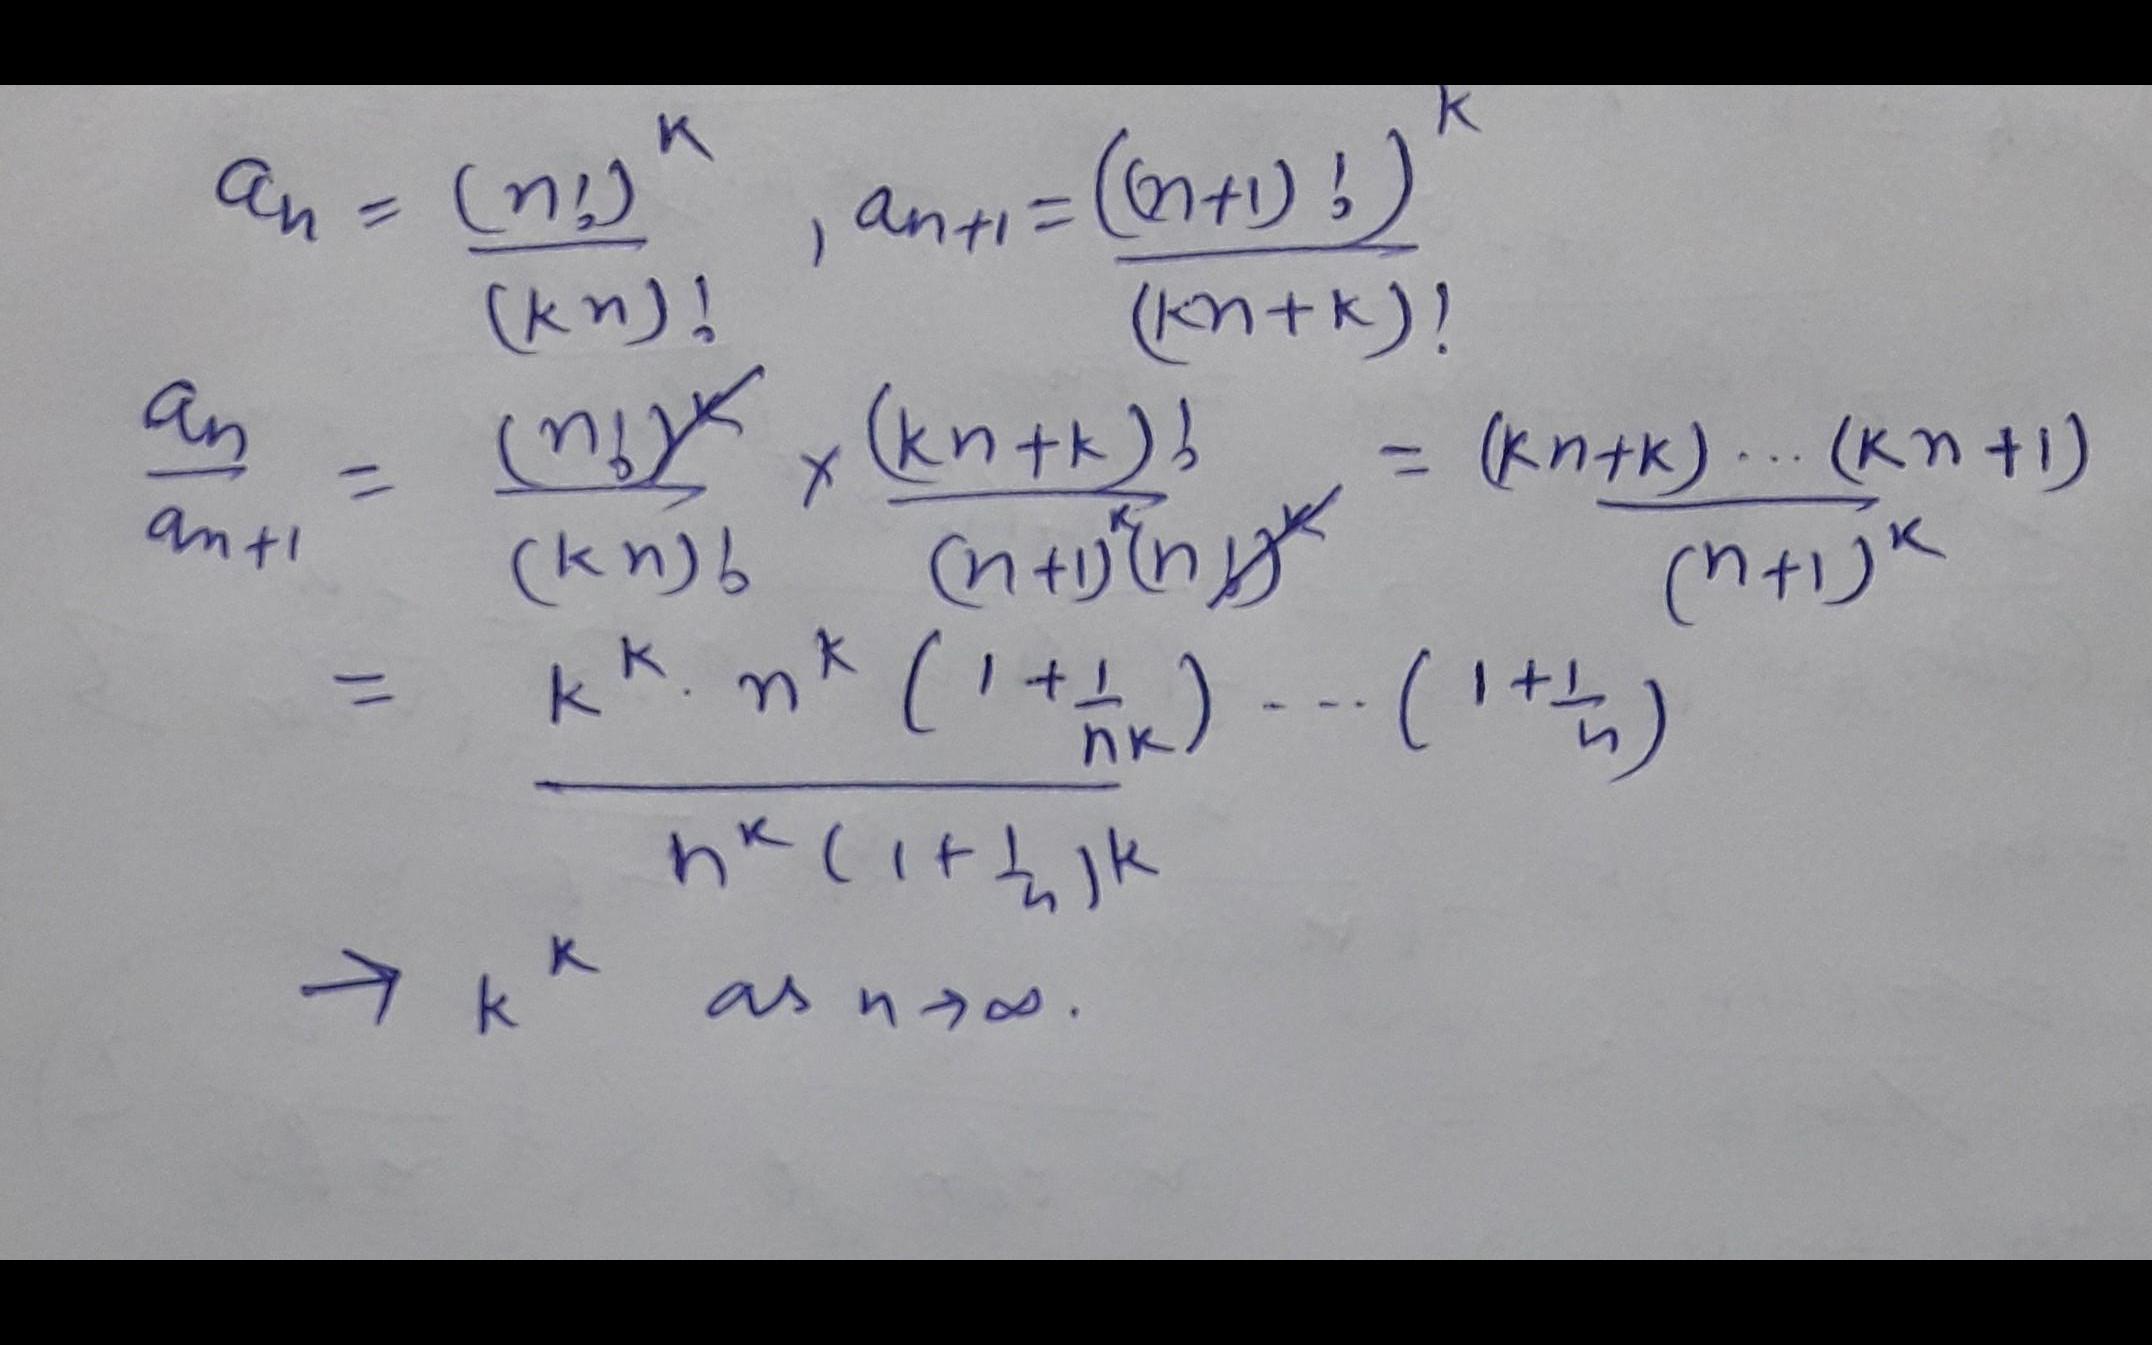 aₙ = (n!)ᵏ / (kn)! , aₙ₊₁ = ((n+1)!)ᵏ / (kn+k)!
aₙ / aₙ₊₁ = (n!)ᵏ / (kn)! × (kn+k)! / (n+1)ᵏ(n!)ᵏ = (kn+k)...(kn+1) / (n+1)ᵏ
= kᵏ. nᵏ (1+1/nk) ---- (1+1/n) / nᵏ(1+1/n)k
→ kᵏ as n→∞.